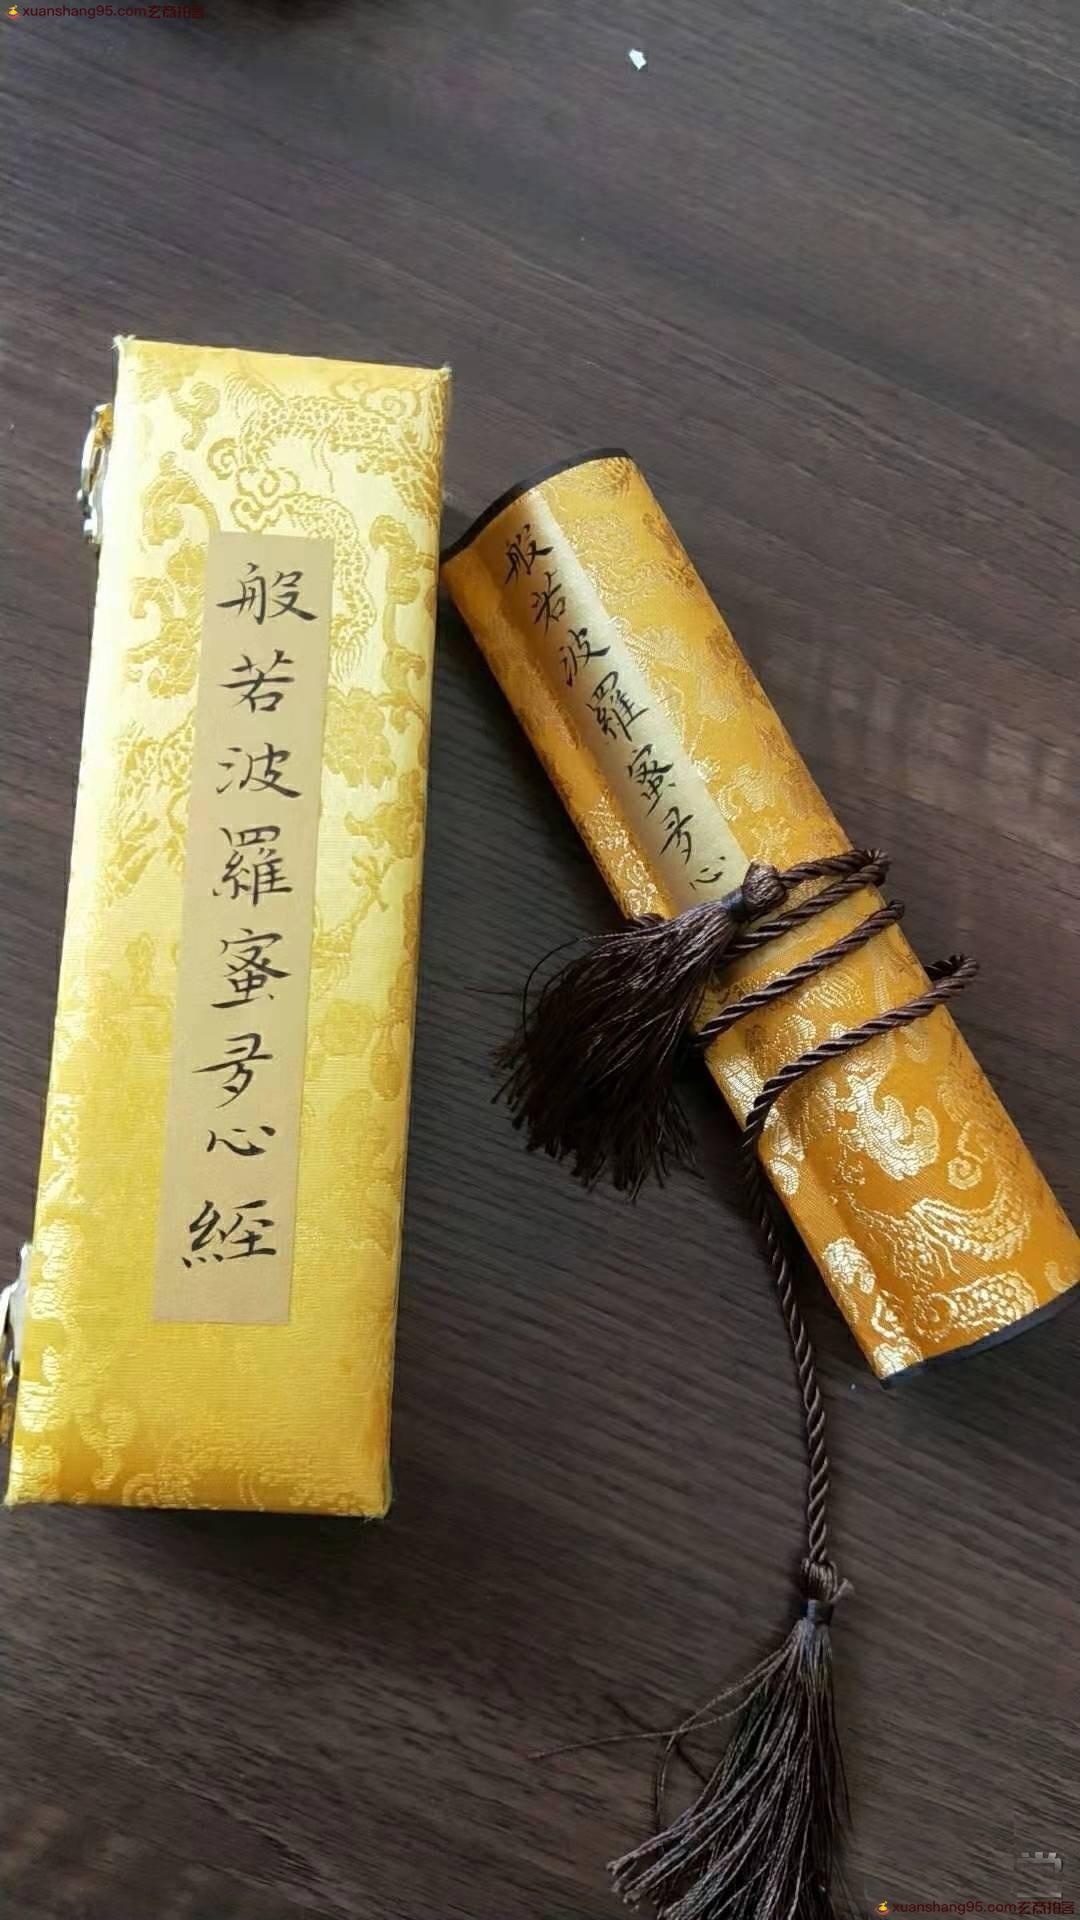 xuanshang95.com玄商拍客
般若波羅蜜多心經
般若波羅蜜多心
xuanshang95.com玄商拍客